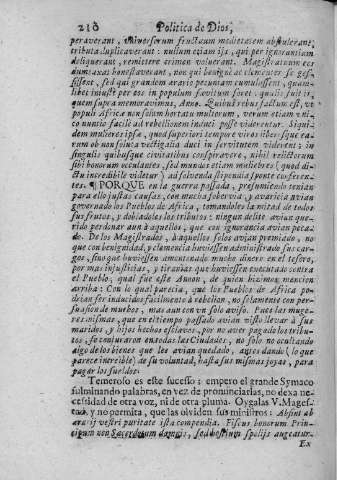 210 Politica de Dios,
peraverant, universorum fructuum medietatem abstulerant,
tributa duplicaverant: nullum etiam ijs, qui per ignorantiam
deliquerant, remittere crimen voluerant. Magistratuum
dumtaxat honestaverant, non qui benigne & clementer se ges-
sissent, sed qui grandem ærario pecuniam cumulassent, quam-
libet iniuste per eos in populum sævitum foret: qualis fuit is,
quem supra memoravimus, Anno. Quibus rebus factum est, ut
populi Africæ non solum hortatu multorum, verum etiam uni-
co nuntio facile ad rebellionem induci posse viderentur. Siqui-
dem mulieres ipsæ, quod superiori tempore viros liberosque ea-
rum ob non soluta vectigalia duci in servitutem viderent: in
singulis quibusque civitatibus conspiravere, nihil relictorum
sibi bonorum occulantes, sed mundos etiam muliebres (quod di-
ctu incredibile videtur) ad solvenda stipendia sponte conferen-
tes. ¶ PORQUE en la guerra passada, presumiendo tenian
para ello justas causas, con mucha sobervia, y avaricia avian
governado los Pueblos de Africa, tomandoles la mitad de todos
sus frutos, y doblandoles los tributos: ningun delito avian que-
rido perdonar aun à aquellos, que con ignorancia avian peca-
do. De los Magistrados, à aquellos solos avian premiado, no
que con benignidad, y clemencia huviessen administrado sus car-
gos, sino que huviessen amontonado mucho dinero en el tesoro,
por mas injusticias, y tiranias que huviessen executado contra
el Pueblo; qual fue este Annon, de quien hizimos mencion
arriba: Con lo qual parecia, que los Pueblos de Africa po-
drian ser inducidos facilmente à rebelion, no solamente con per-
suasion de muchos, mas aun con un solo aviso. Pues las muge-
res mismas, que en el tiempo passado avian visto llevar à sus
maridos, y hijos hechos esclavos, por no aver pagado los tribu-
tos, se conjuraron en todas las Ciudades, no solo no ocultando
algo de los bienes que les avian quedado, antes dando (lo que
parece increible) de su voluntad, hasta sus mismas joyas, para
pagar los sueldos.
Temeroso es este sucesso: empero el grande Symaco
fulminando palabras, en vez de pronunciarlas, no dexa ne-
cessidad de otra voz, ni de otra pluma. Oygalas V. Mages-
tad, y no permita, que las olviden sus ministros: Absint ab
ærarij vestri puritate ista compendia. Fiscus bonorum Prin-
cipum non Sacerdotum damnis, sed hostium spolijs augeatur.
Ex